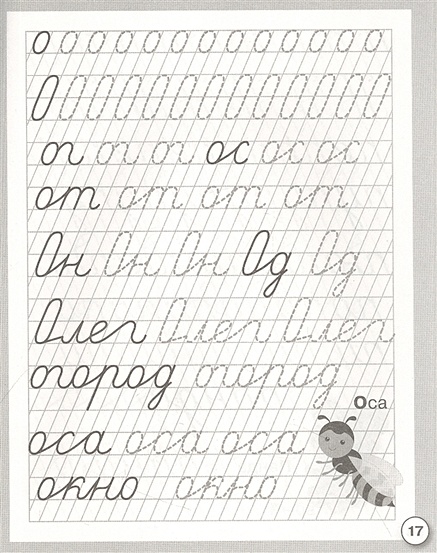 о о о о о о о о о о о о о о о
О О О О О О О О О О О О О О О
ог ог ог ос ос ос
от от от от
Он Он Он Од Од
Олег Олег Олег
огород огород
Оса
оса оса оса
окно окно
17